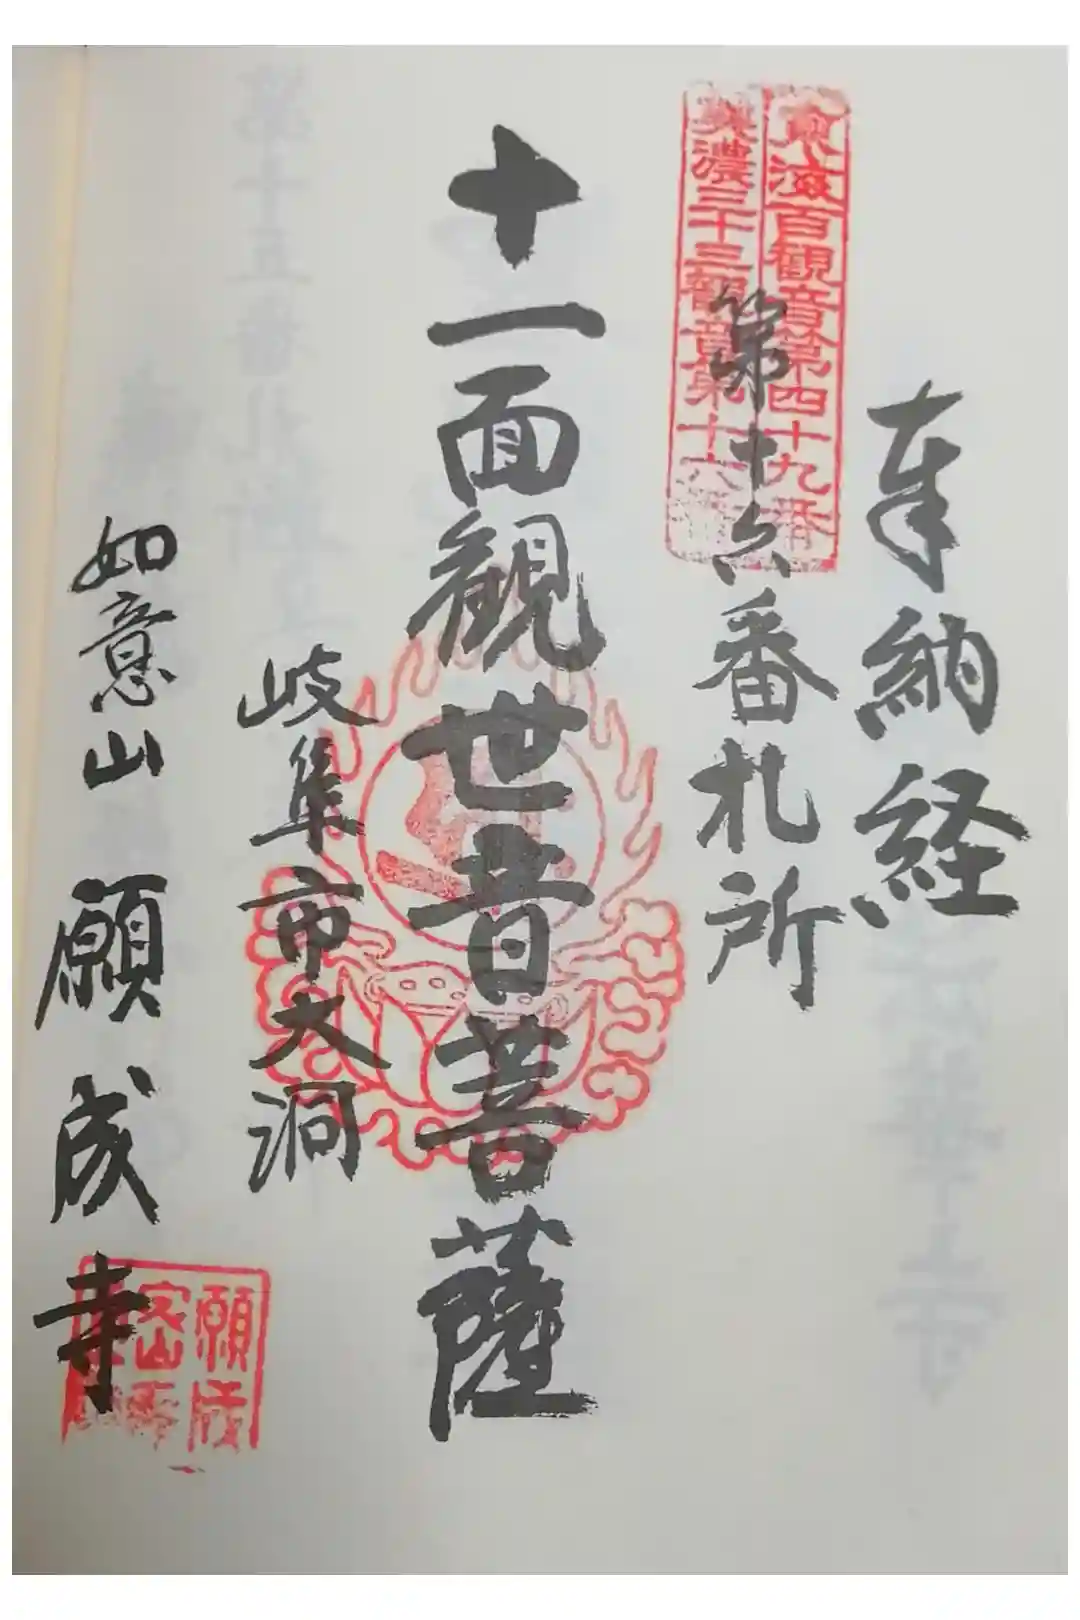 奉納経
東海百観音第四十九番
美濃三十三観音第十六番
第十六番札所
十一面観世音菩薩
岐阜市大洞
如意山 願成寺
願成
密